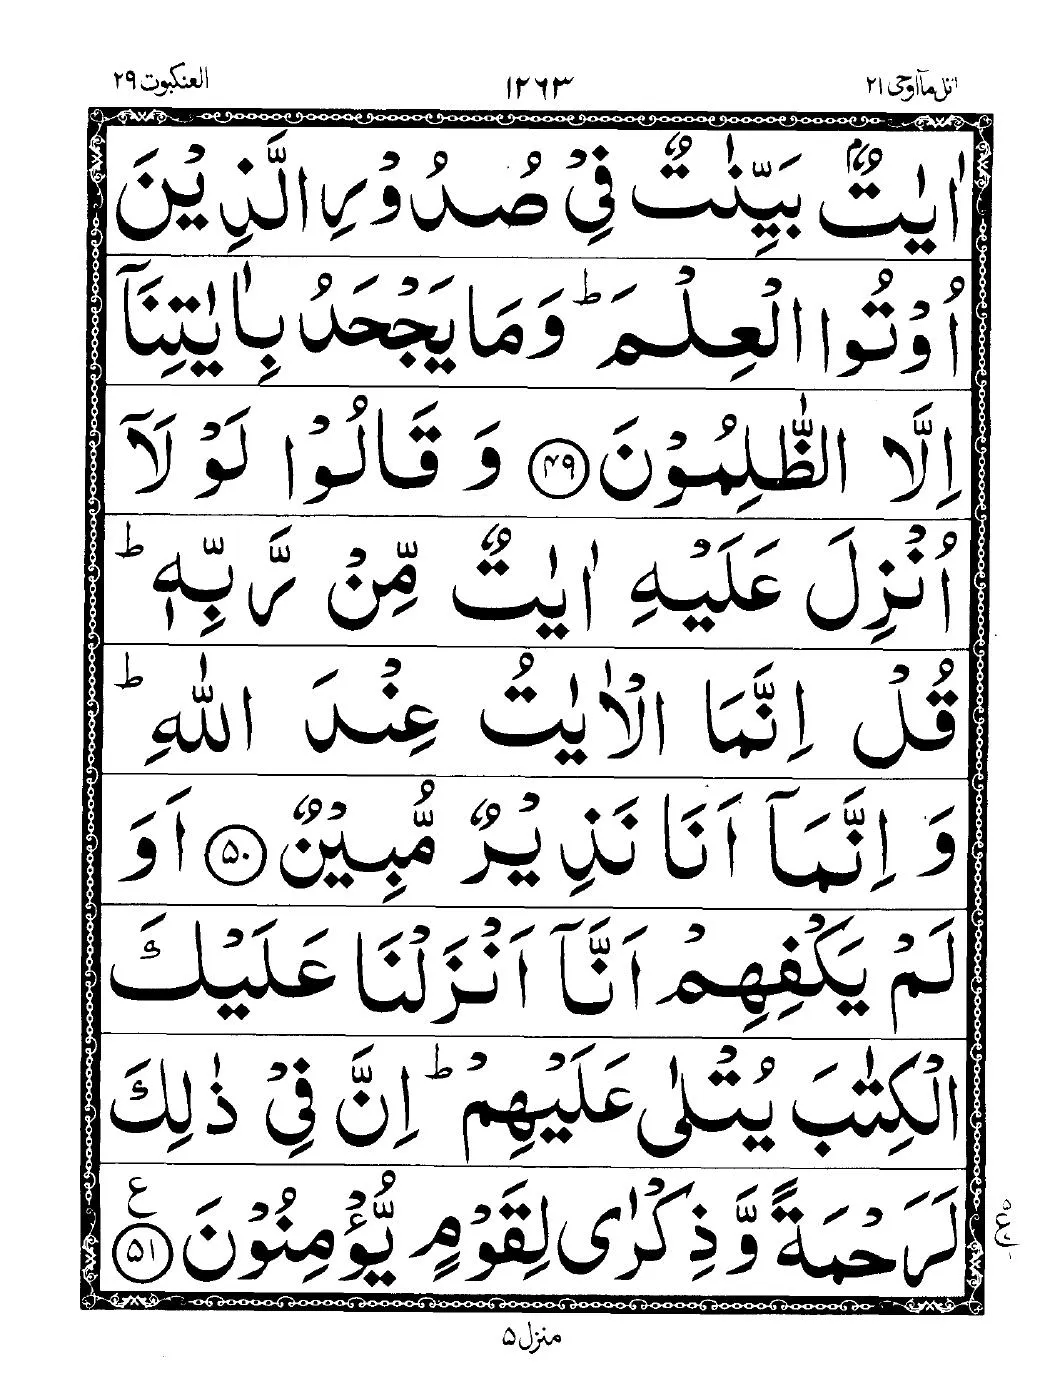 اتل مآ اوحی ۲۱
۱۲۶۳
العنکبوت ۲۹
اٰیٰتٌۢ بَیِّنٰتٌ فِیْ صُدُوْرِ الَّذِیْنَ
اُوْتُوا الْعِلْمَ ؕ وَمَا یَجْحَدُ بِاٰیٰتِنَاۤ
اِلَّا الظّٰلِمُوْنَ ﴿۴۹﴾ وَ قَالُوْا لَوْلَاۤ
اُنْزِلَ عَلَیْهِ اٰیٰتٌ مِّنْ رَّبِّهٖ ؕ
قُلْ اِنَّمَا الْاٰیٰتُ عِنْدَ اللّٰهِ ؕ
وَ اِنَّمَاۤ اَنَا نَذِیْرٌ مُّبِیْنٌ ﴿۵۰﴾ اَوَ
لَمْ یَكْفِهِمْ اَنَّاۤ اَنْزَلْنَا عَلَیْكَ
الْكِتٰبَ یُتْلٰی عَلَیْهِمْ ؕ اِنَّ فِیْ ذٰلِكَ
لَرَحْمَةً وَّ ذِكْرٰی لِقَوْمٍ یُّؤْمِنُوْنَ ﴿۵۱﴾ ع
منزل ۵